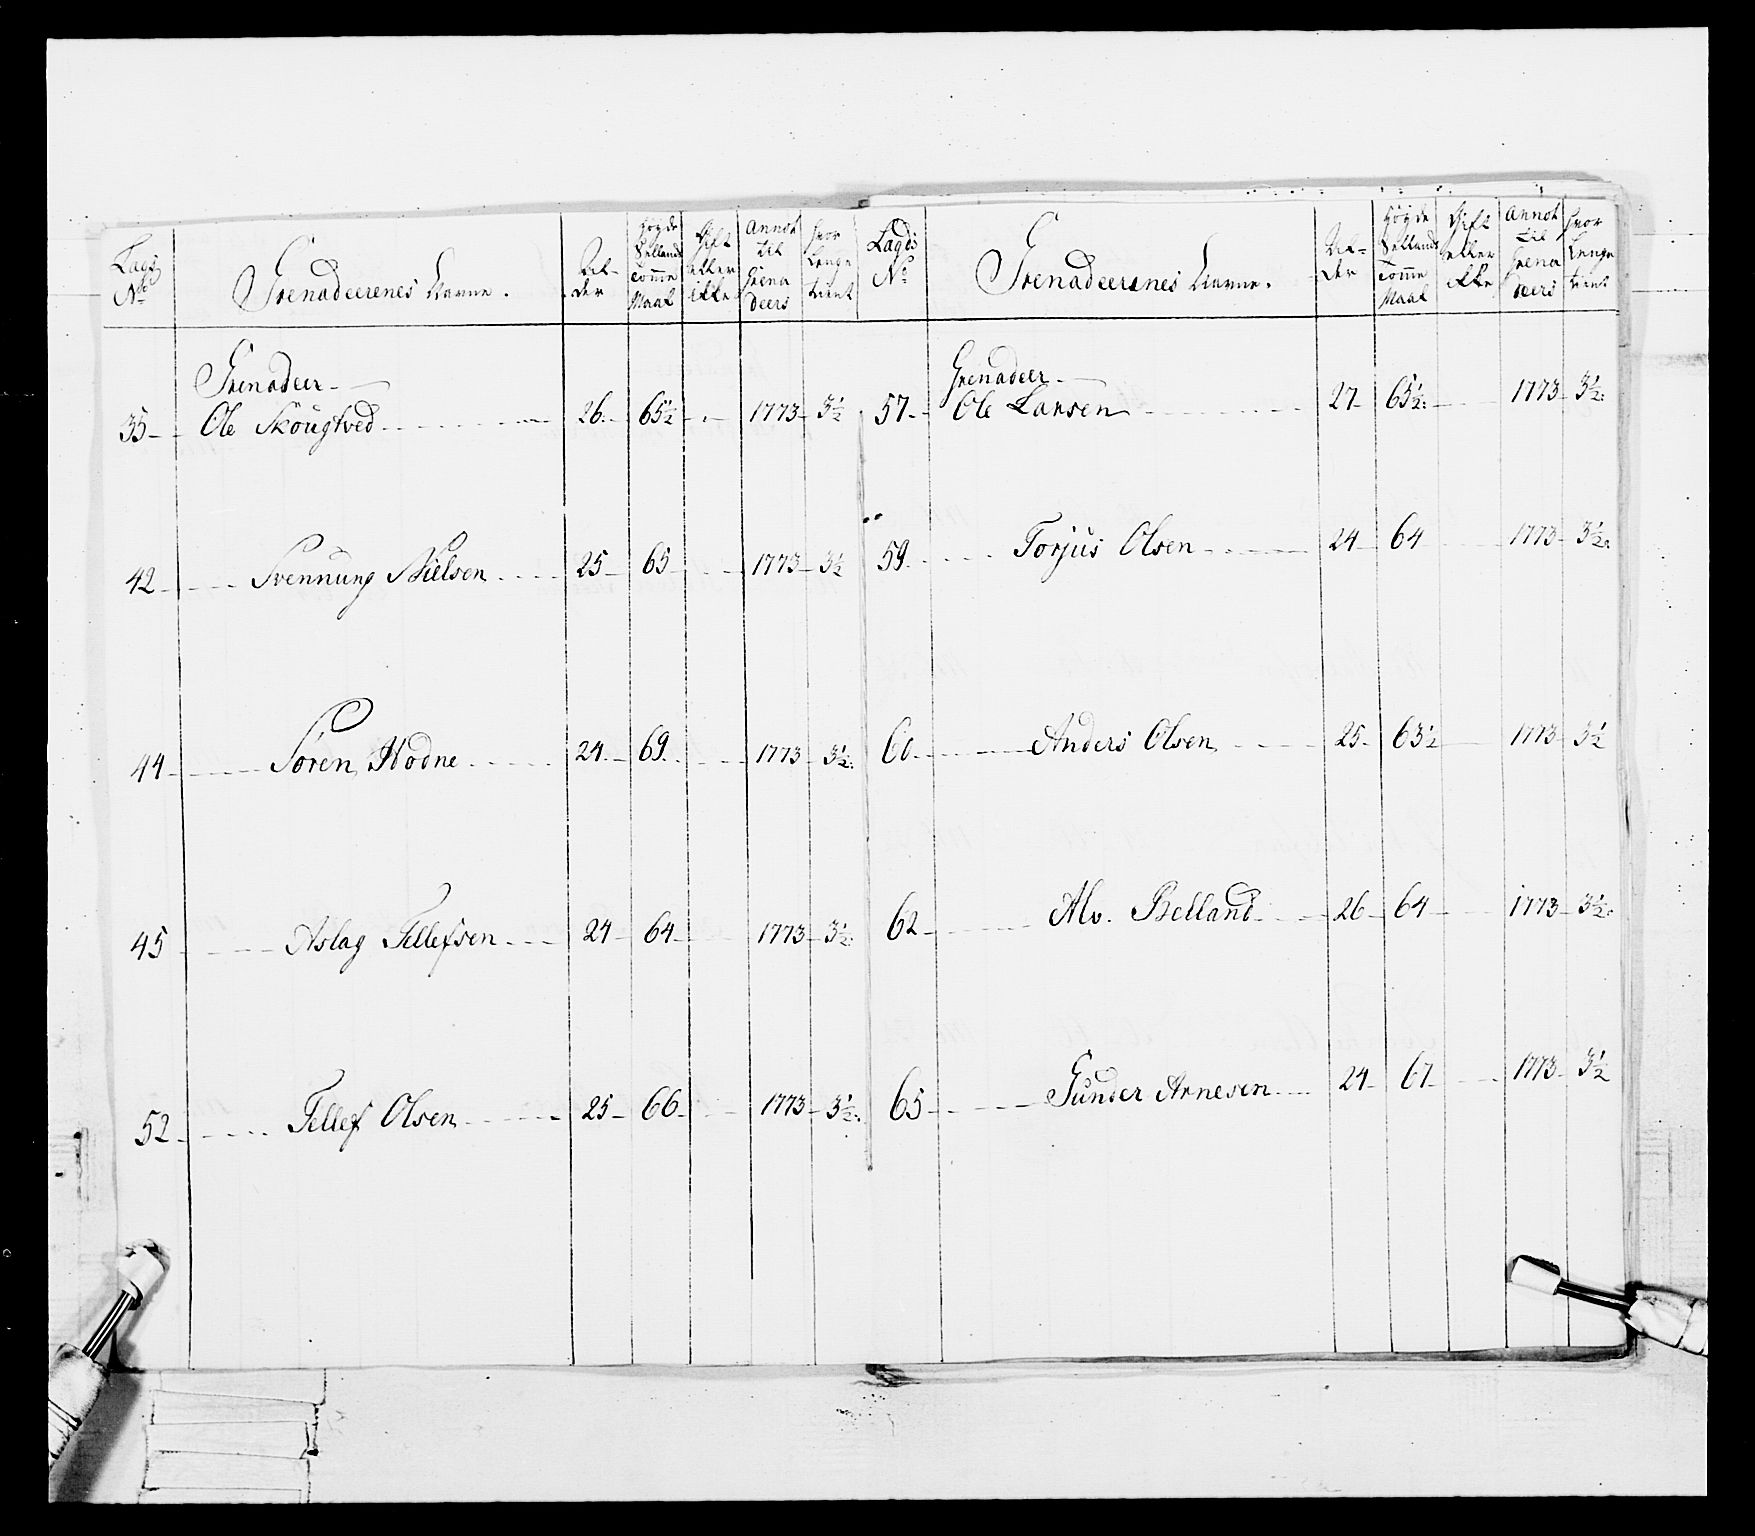 Lags No. Grenadeerenes Navne. Al-der Höyde Sellands Tomme Maal Gift eller ikke Annot til Grenadeers hvor Lenge tient
Grenadeer
35 Ole Skougtved 26. 65½ 1773 3½
42 Svennung Nielsen 25 65 1773 3½
44 Sören Hodne 24. 69. 1773 3½
45 Aslag Tellefsen 24 64 1773 3½
52 Tellef Olsen 25 66 1773 3½
Lagds No. Grenadeerenes Navne. Al-der Höyde Sellands Tomme Maal Gift eller ikke Annot til Grenadeers hvor Lenge tient
Grenadeer
57 Ole Larsen 27 65½ 1773 3½
59 Torjus Olsen 24 64 1773 3½
60 Anders Olsen 25 63½ 1773 3½
62 Alv. Belland 26 64 1773 3½
65 Gunder Arnesen 24 67 1773 3½